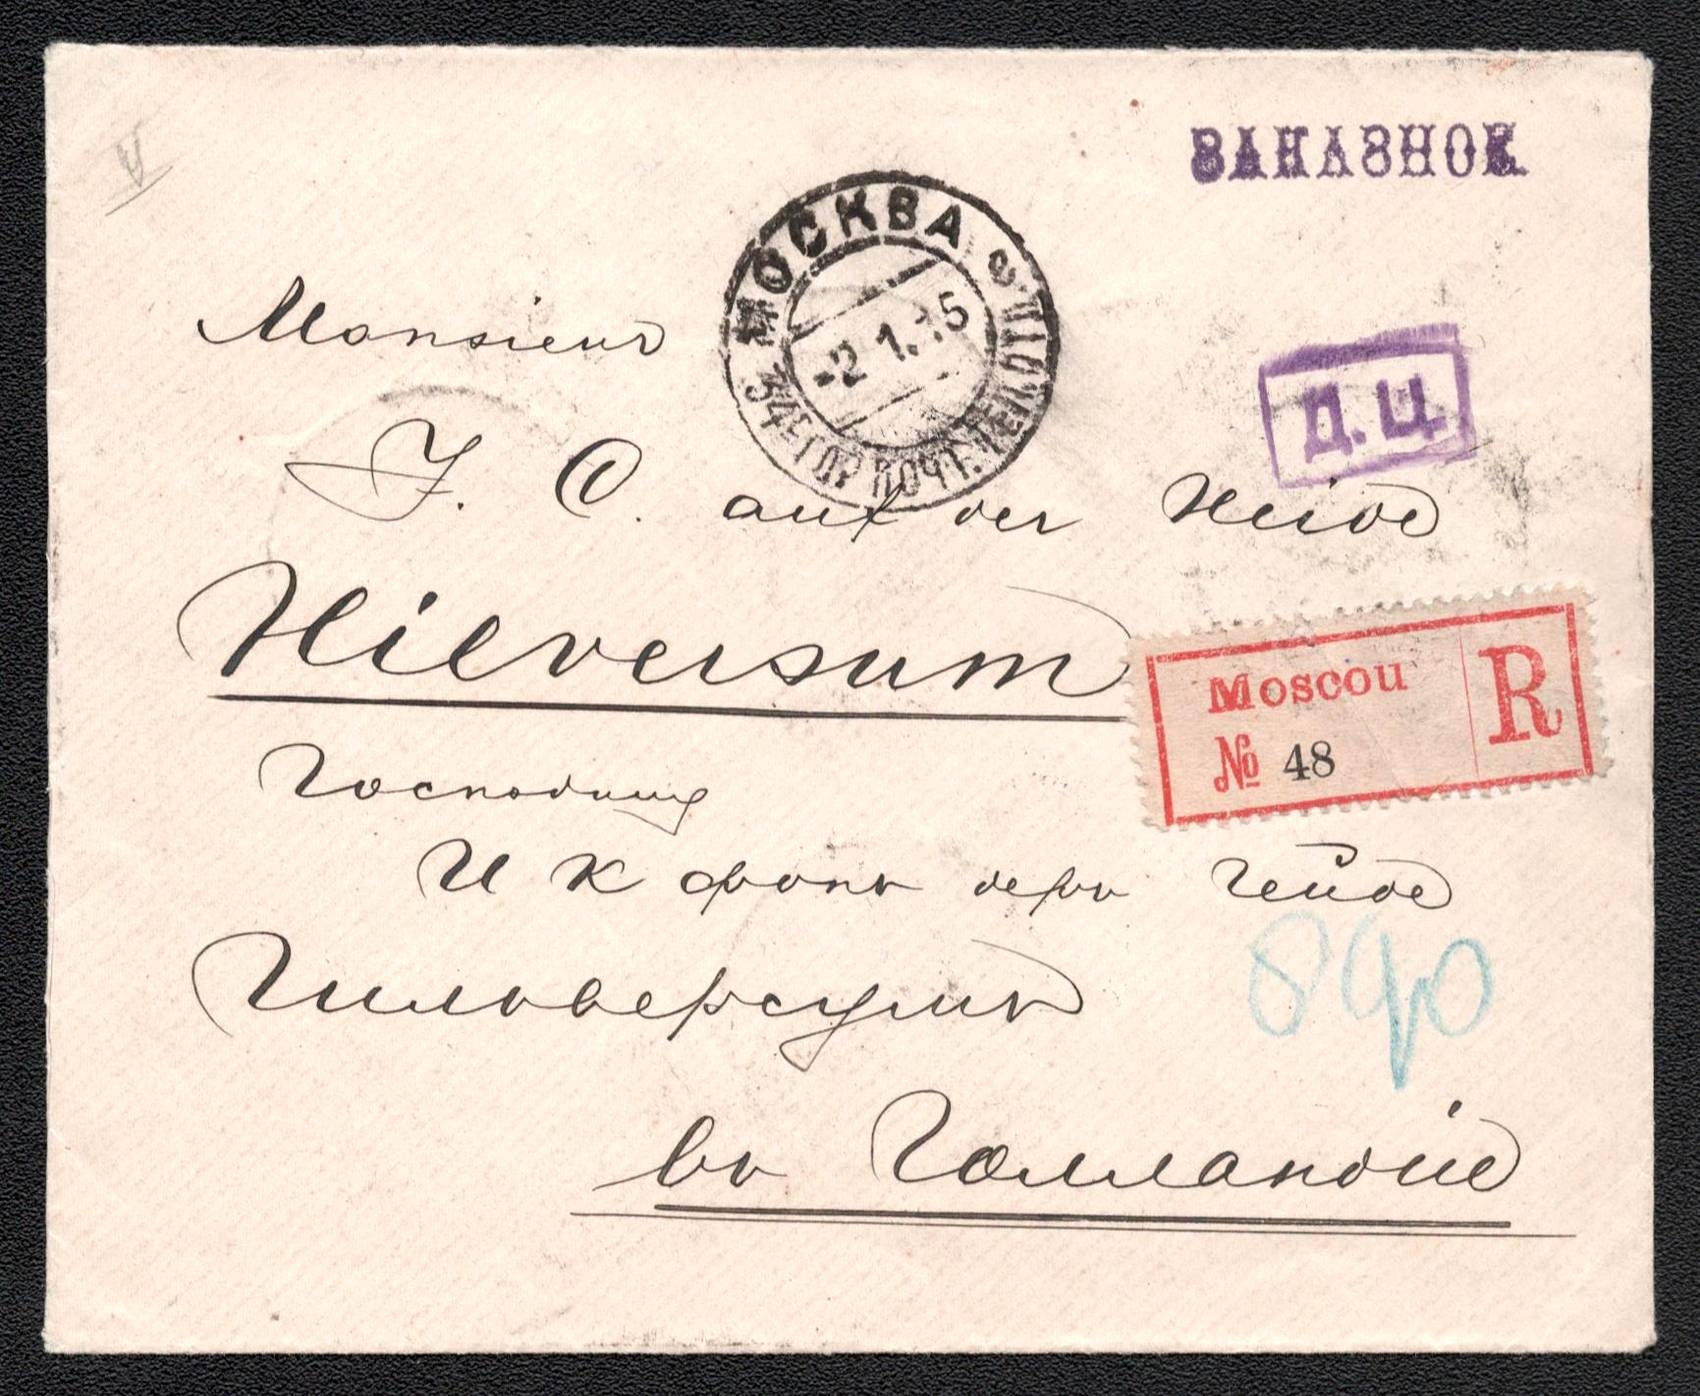 ЗАКАЗНОЕ
МОСКВА
-2 1. 15
34 ГОР. ПОЧТ.
Д.Ц
Monsieur
J. C. auf der Heide
Hilversum
Moscou
№ 48
R
Господину
И К фонъ деръ Гейде
Гильверсумъ
въ Голландіе